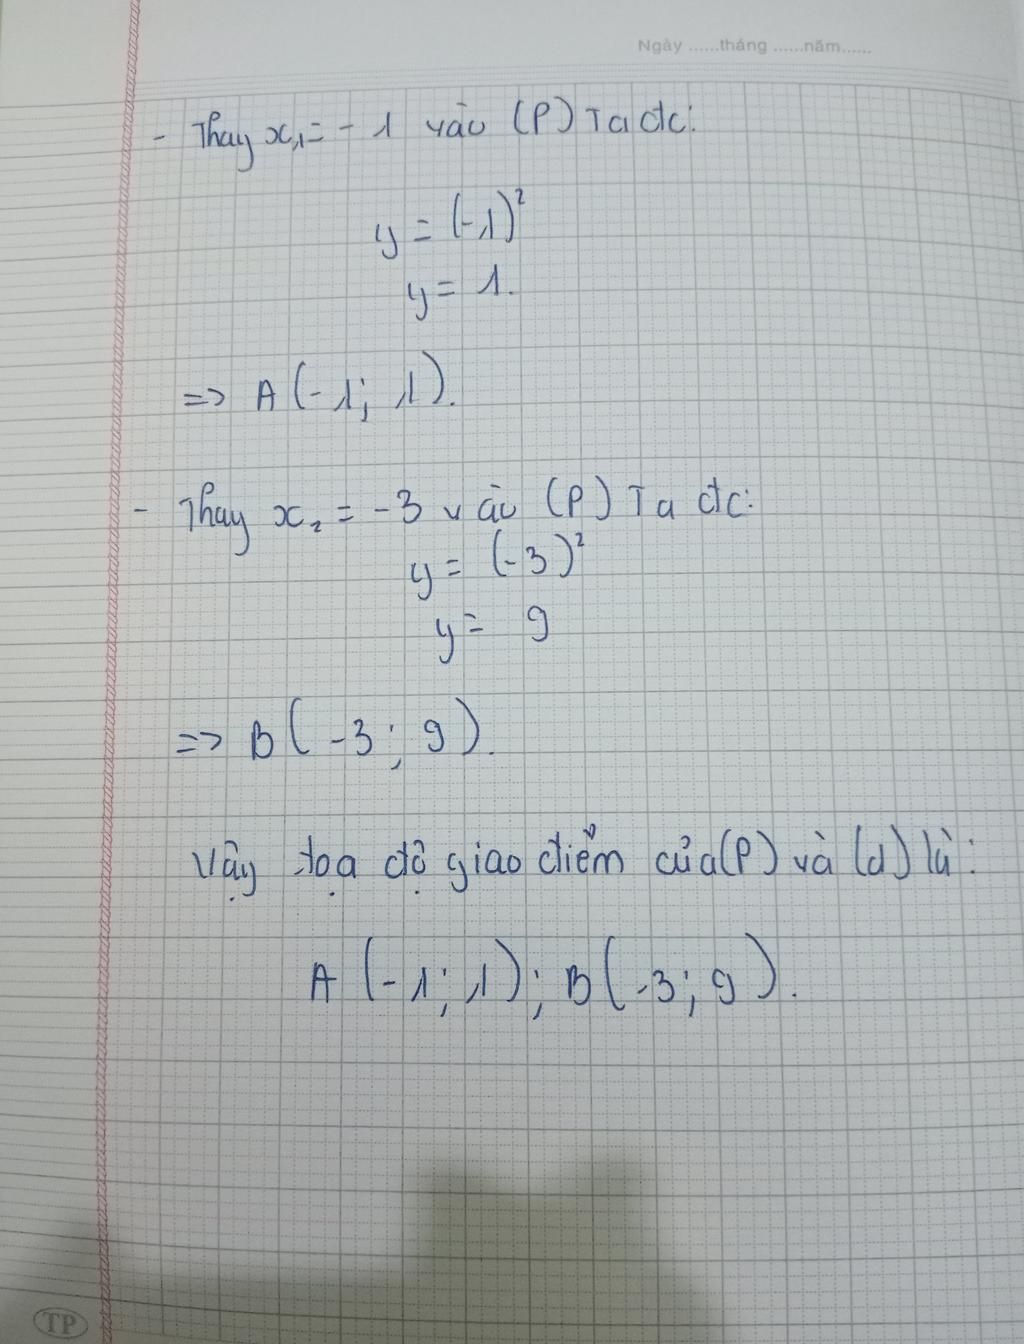 Ngày ......tháng ......năm......
- Thay x₁ = - 1 vào (P) Ta đc:
y = (-1)²
y = 1.
=> A (-1; 1).
- Thay x₂ = -3 vào (P) Ta đc:
y = (-3)²
y = 9
=> B (-3; 9).
Vậy tọa độ giao điểm của (P) và (d) là:
A (-1; 1); B (-3; 9).
TP